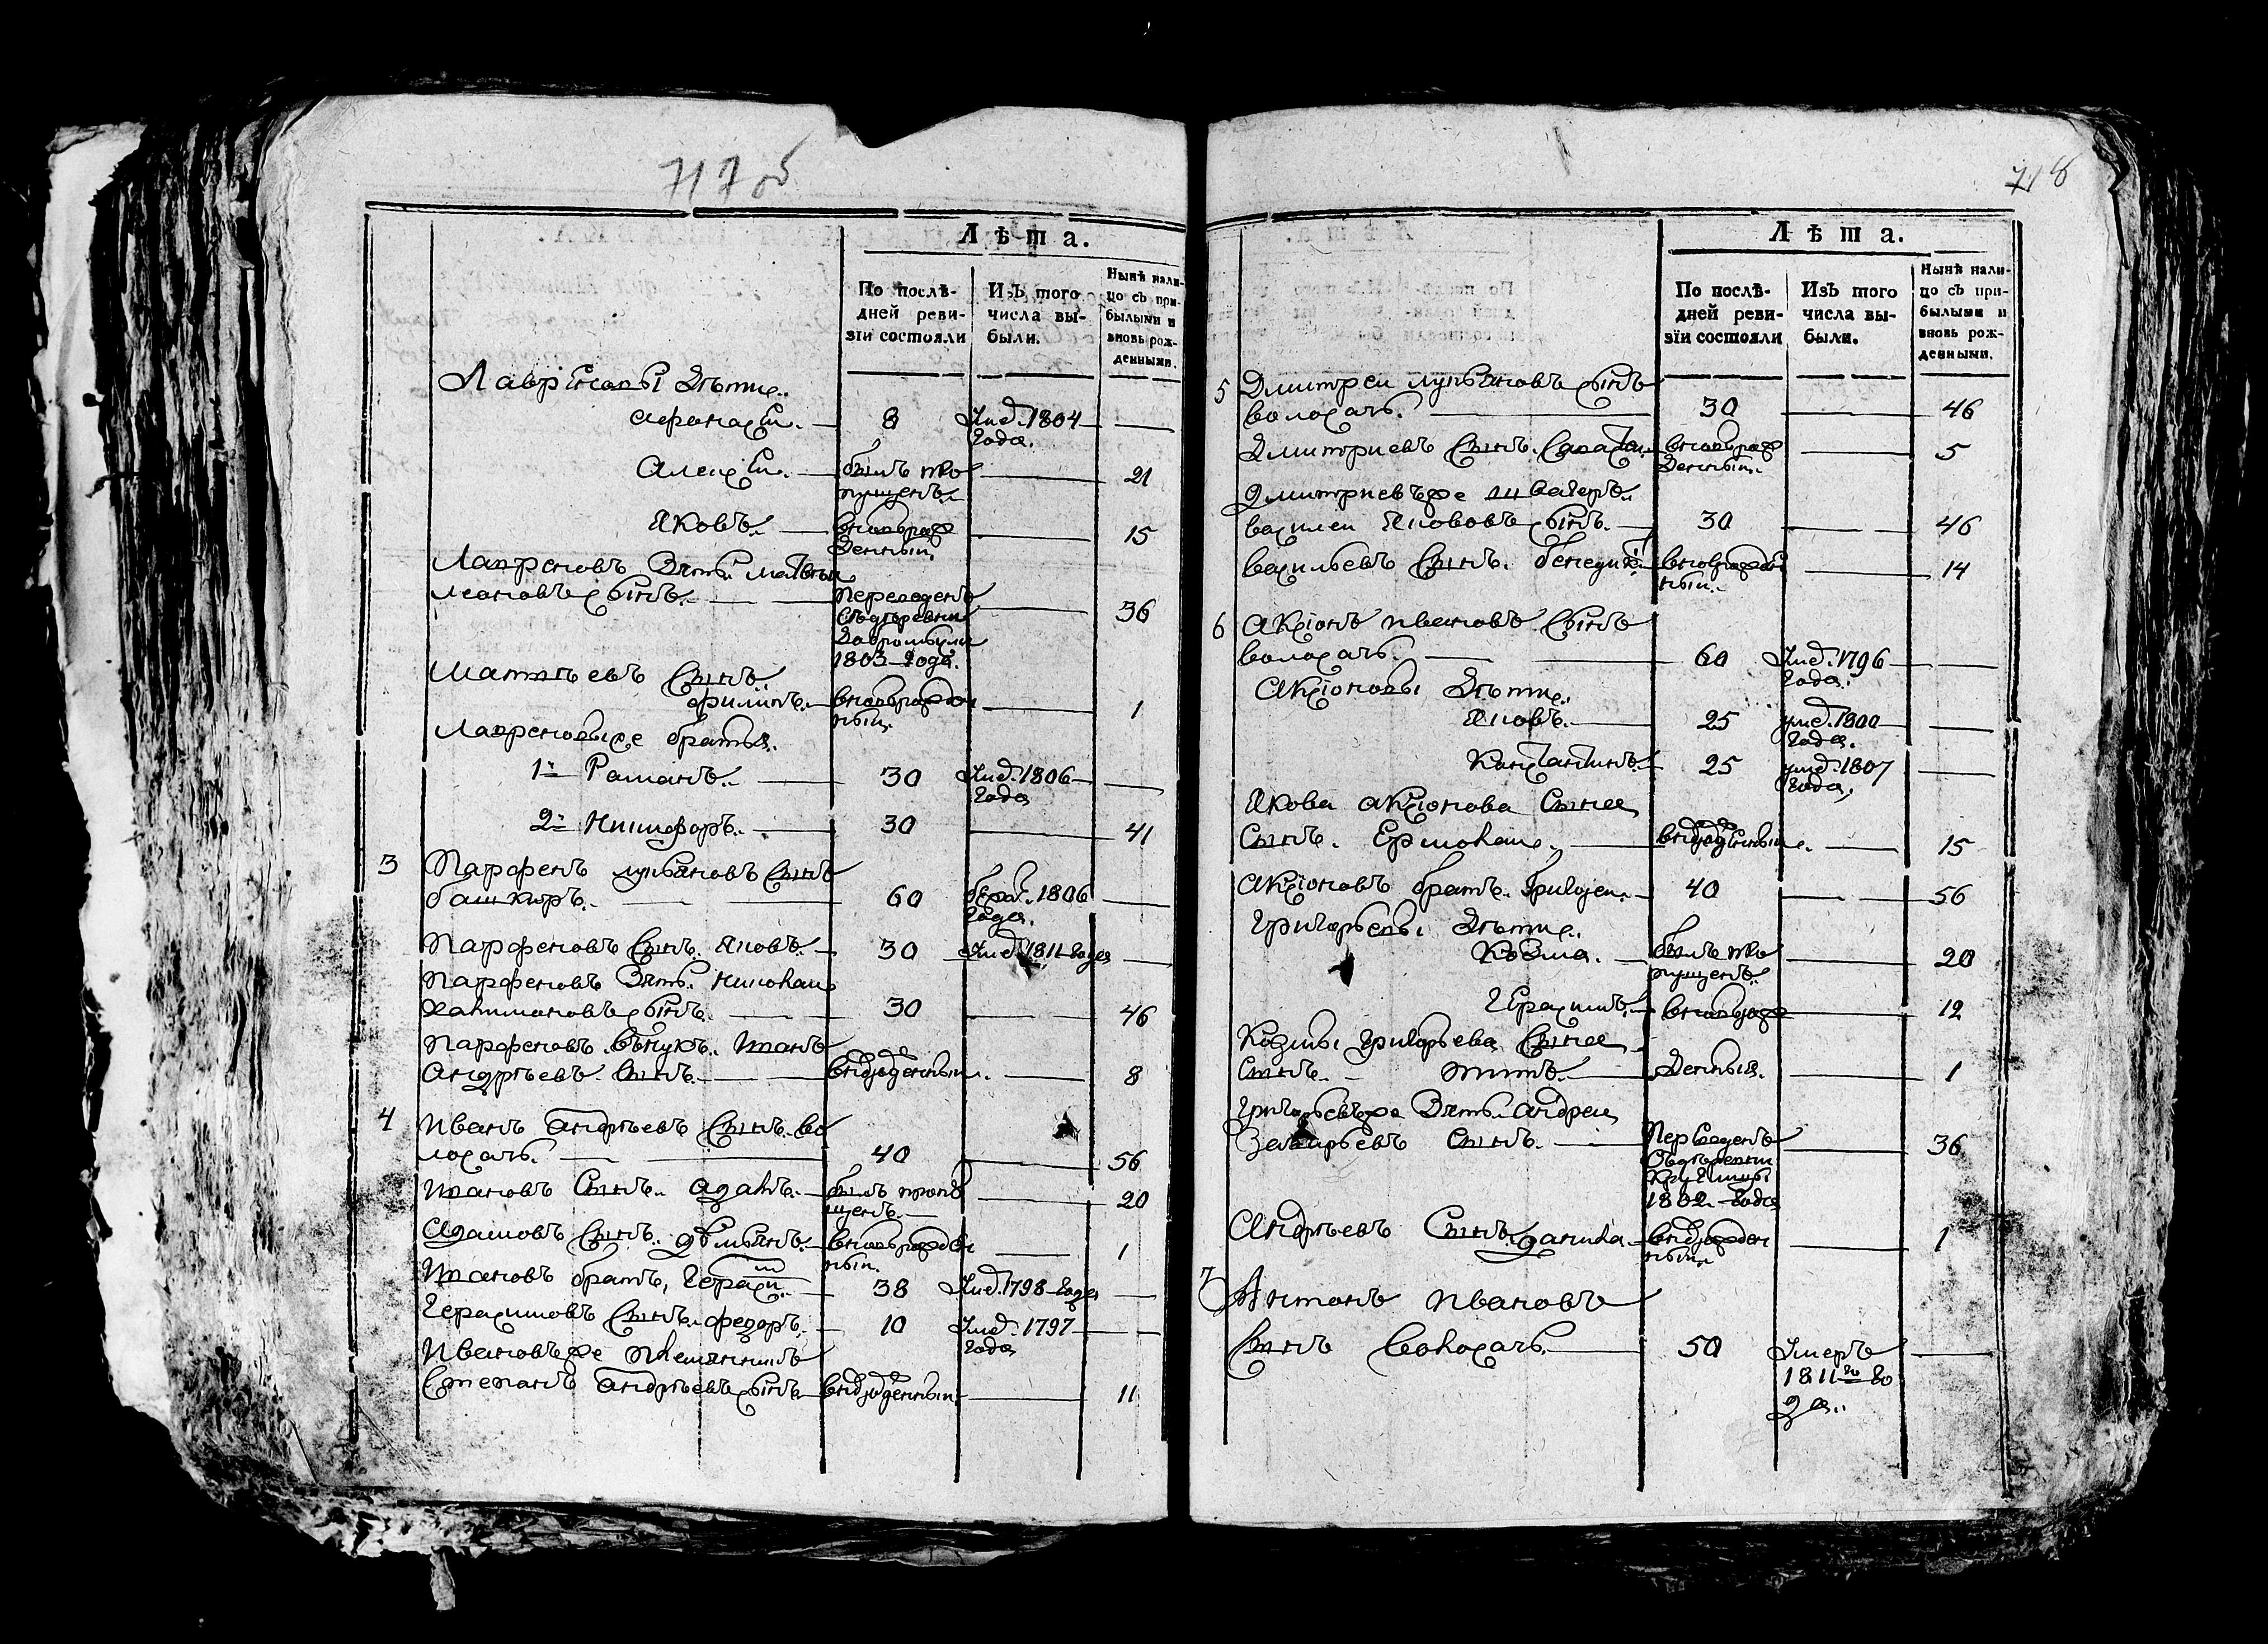 717 об
Лѣта.
По послѣ-
дней реви-
зіи состояли
Изъ того
числа вы-
были.
Нынѣ нали-
цо съ при-
былыми и
вновь рож-
денными.
Лавреновы дѣти.
Афонасеи. 8 Умер. 1804 —
года.
Алексеи. былъ про — 21
пущенъ.
Яковъ. вновьрож — 15
денный
Лавреновъ зять. Матвеи
леоновъ сынъ. переведенъ — 36
съ деревни
1803 года.
Матвѣевъ сынъ
филипъ. вновьрожден — 1
ный.
Лавреновы же братья.
1й Романъ. 30 Умер. 1806 —
года
2й Никифоръ. 30 — 41
3 Парфенъ лукьяновъ сынъ
башкиръ. 60 1806 —
года.
Парфеновъ сынъ. Яковъ. 30 Умер. 1811 года —
Парфеновъ зять. Николаи
сынъ. 30 — 46
Парфеновъ. внукъ. Иванъ
Андрѣевъ сынъ. вновьрожденный. — 8
4 Иванъ андрѣевъ сынъ. во
лохъ. 40 — 56
Ивановъ сынъ. адамъ. былъ пропу — 20
щенъ.
Адамовъ сынъ. демьянъ. вновьрожден — 1
ный.
Ивановъ братъ, Герасим. 38 Умер. 1798 года —
Герасимовъ сынъ. федоръ. 10 Умер. 1797 —
года
Ивановъ же племянникъ
Степанъ андрѣевъ сынъ вновьрожденный. — 11
718
Лѣта.
По послѣ-
дней реви-
зіи состояли
Изъ того
числа вы-
были.
Нынѣ нали-
цо съ при-
былыми и
вновь рож-
денными.
5 Дмитреи лукьяновъ сынъ
30 — 46
Дмитриевъ сынъ. вновьрож — 5
денный.
Дмитриевъ же шваgеръ.
василеи Яковъ сынъ. 30 — 46
васильевъ сынъ. бенедикт. вновьрожден — 14
ный.
6 Аксионъ ивановъ сынъ
60 Умер. 1796 —
года.
Аксионовы дѣти.
Яковъ. 25 умер. 1800 —
года.
Константинъ. 25 умер. 1807 —
года,
Якова аксионова сына
сынъ. Ермолаи. вновьрожденный. — 15
Аксионовъ братъ. григореи. 40 — 56
Григорьевы дѣти.
Козма. былъ про — 20
пущенъ.
Герасимъ. вновьрож — 12
Козмы григорьева сына
сынъ. титъ. денныя. — 1
Григорьевъ же зять. андреи
Захарьевъ сынъ. переведенъ — 36
съ деревни
1802 года
Андрѣевъ сынъ. данила вновьрожден — 1
ный.
7 Антонъ ивановъ
сынъ 50 Умеръ —
1811го го
да..